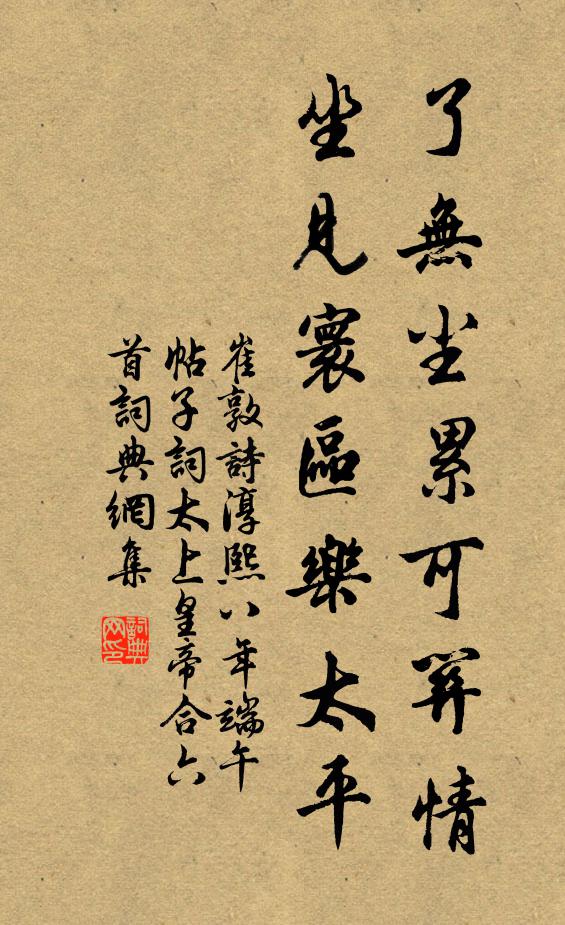 了無尘累可關情
坐見寰區樂太平
崔敦詩淳熙八年端午
帖子詞太上皇帝合六
首詞典網集
詞典網印